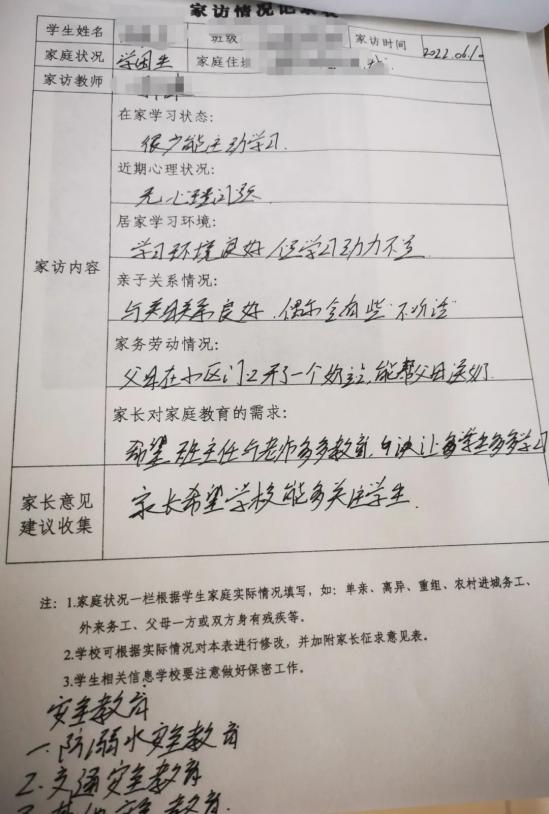 家访情况记录表
学生姓名 班级 家访时间 2022.06.10
家庭状况 学困生 家庭住址
家访教师
家访内容
在家学习状态：
很少能主动学习.
近期心理状况：
无心理问题
居家学习环境：
学习环境良好 但学习动力不足
亲子关系情况：
与父母关系良好. 偶尔会有些不听话
家务劳动情况：
父母在小区门口开了一个奶站,能帮父母送奶.
家长对家庭教育的需求：
希望班主任与老师多多教育, 让学生多多学习
家长意见
建议收集
家长希望学校能多关注学生.
注：1.家庭状况一栏根据学生家庭实际情况填写，如：单亲、离异、重组、农村进城务工、
外来务工、父母一方或双方身有残疾等。
2.学校可根据实际情况对本表进行修改，并加附家长征求意见表。
3.学生相关信息学校要注意做好保密工作。
安全教育
一.防溺水安全教育
2.交通安全教育
安全教育.